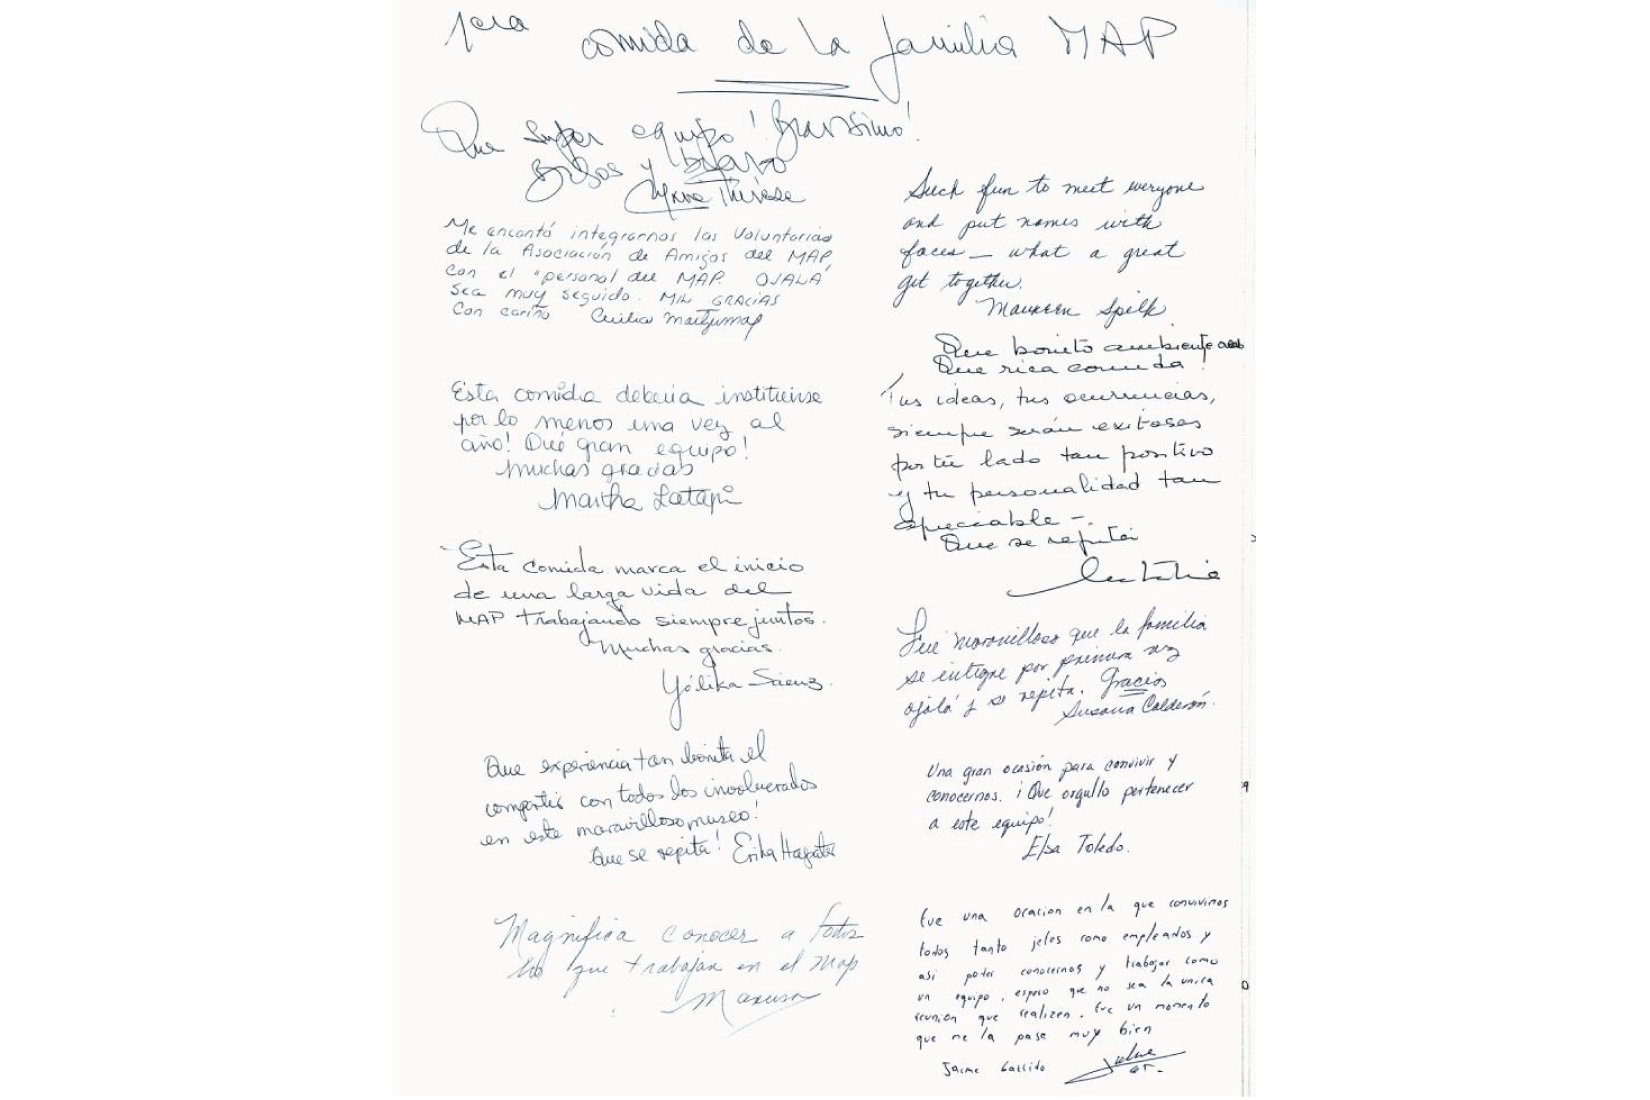 1era comida de la familia MAP
Que super equipo! Bravisimo!
Besos y bravo
Thérèse
Me encantó integrarnos las Voluntarias
de la Asociación de Amigos del MAP
con el "personal del MAP. OJALÁ
sea muy seguido. MIL GRACIAS
Con cariño Cecilia
Esta comida debería instituirse
por lo menos una vez al
año! Qué gran equipo!
Muchas gracias
Martha Latapí
Esta comida marca el inicio
de una larga vida del
MAP trabajando siempre juntos.
Muchas gracias.
Yólika Sáenz.
Que experiencia tan bonita el
compartir con todos los involucrados
en este maravilloso museo!
Que se repita! Erika
Magnifica conocer a todos
los que trabajan en el Map
Such fun to meet everyone
and put names with
faces — what a great
get together.
Maureen Spilk
Que bonito ambiente
Que rica comida!
Tus ideas, tus ocurrencias,
siempre serán exitosas
por tu lado tan positivo
y tu personalidad tan
apreciable –.
Que se repita
Fue maravilloso que la familia
se integre por primera vez
ojalá y se repita. Gracias
Susana Calderón.
Una gran ocasión para convivir y
conocernos. ¡Que orgullo pertenecer
a este equipo!
Elsa Toledo.
Fue una ocacion en la que convivimos
todos tanto jefes como empleados y
asi poder conocernos y trabajar como
un equipo, espero que no sea la unica
reunion que realizen. Fue un momento
que me la pase muy bien
Jaime Garrido